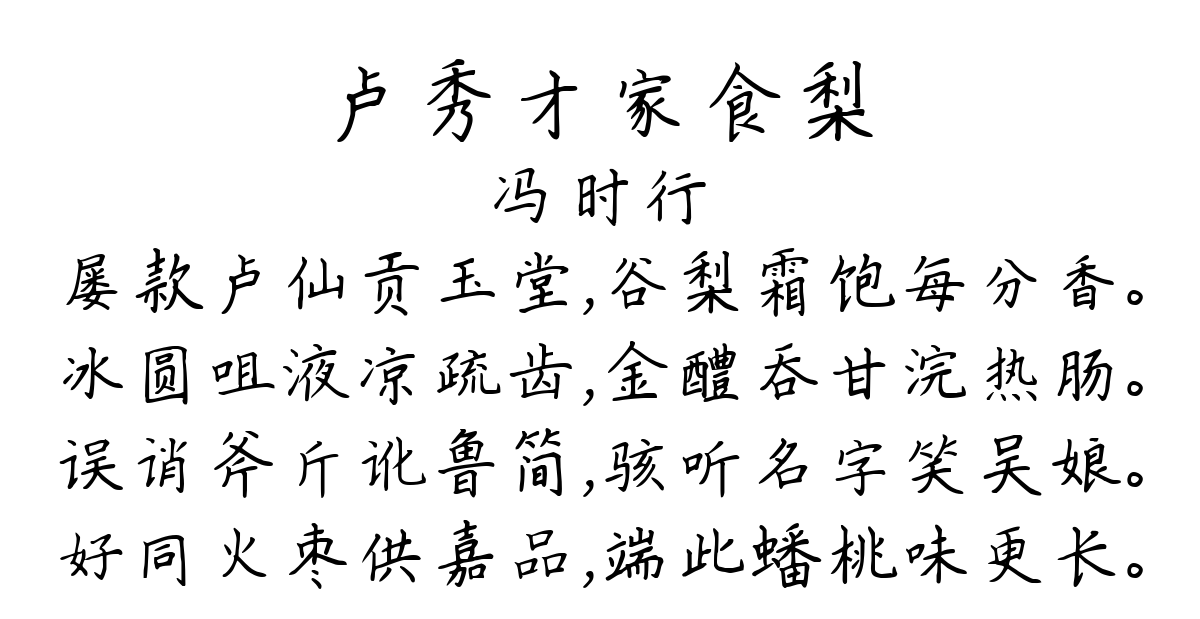 卢秀才家食梨
冯时行
屡款卢仙贡玉堂,谷梨霜饱每分香。
冰圆咀液凉疏齿,金醴吞甘浣热肠。
误诮斧斤讹鲁简,骇听名字笑吴娘。
好同火枣供嘉品,端此蟠桃味更长。